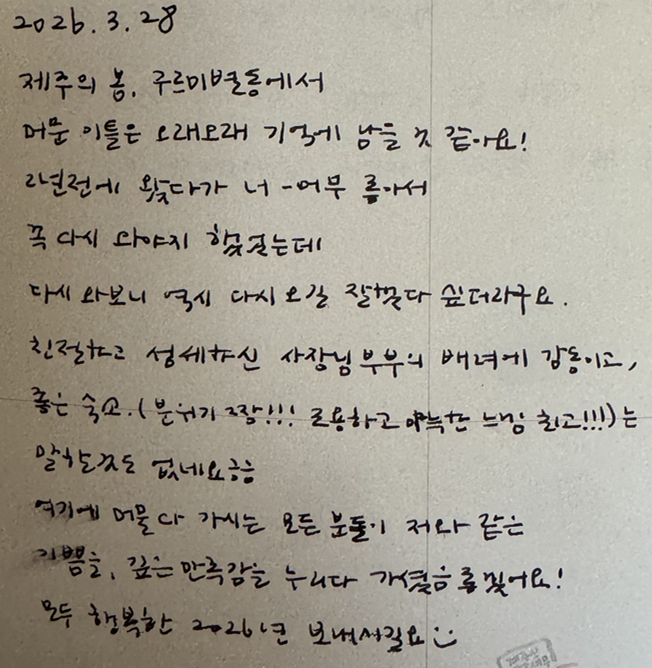 2026.3.28
제주의 봄, 구르미별동에서
머문 이틀은 오래오래 기억에 남을 것 같아요!
2년전에 왔다가 너-어무 좋아서
꼭 다시 와야지 했었는데
다시 와보니 역시 다시 오길 잘했다 싶더라구요.
친절하고 섬세하신 사장님부부의 배려에 감동이고,
좋은 숙소.(분위기 짱!!! 조용하고 아늑한 느낌 최고!!!)는
말할것도 없네요ㅎㅎ
여기에 머물다 가시는 모든 분들이 저와 같은
기쁨을, 깊은 만족감을 누리다 가셨음 좋겠어요!
모두 행복한 2026년 보내시길요